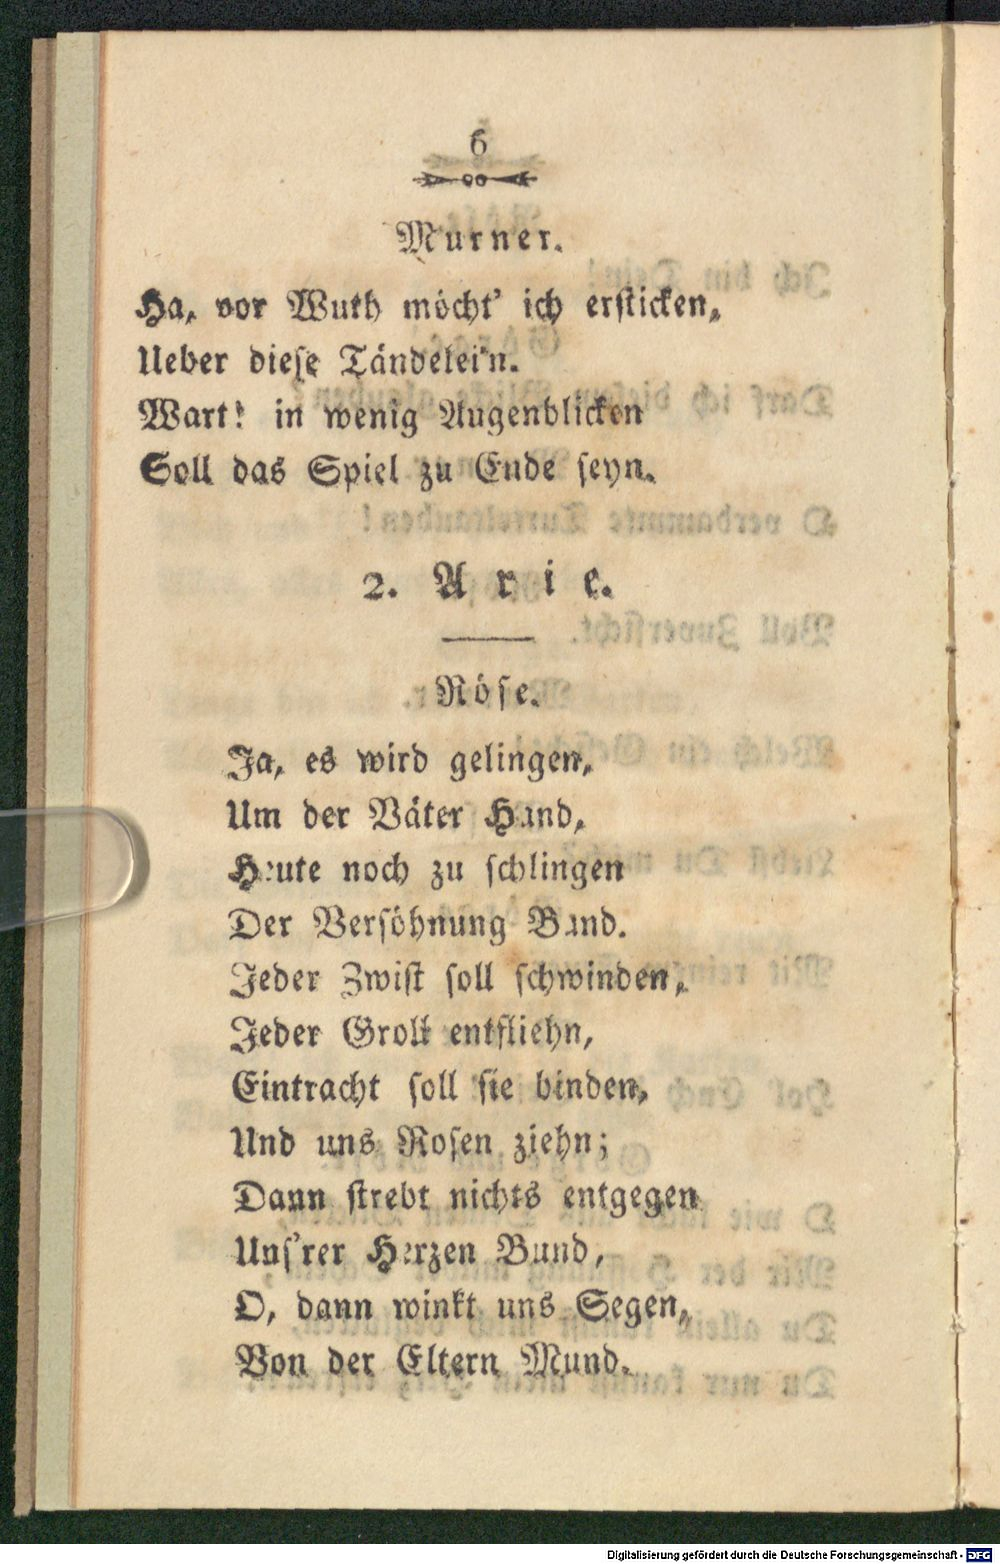 6
Murner.
Ha, vor Wuth möcht' ich ersticken,
Ueber diese Tändelei'n.
Wart! in wenig Augenblicken
Soll das Spiel zu Ende seyn.
2. Arie.
Röse.
Ja, es wird gelingen,
Um der Väter Hand,
Heute noch zu schlingen
Der Versöhnung Band.
Jeder Zwist soll schwinden,
Jeder Groll entfliehn,
Eintracht soll sie binden,
Und uns Rosen ziehn;
Dann strebt nichts entgegen
Uns'rer Herzen Bund,
O, dann winkt uns Segen,
Von der Eltern Mund.
Digitalisierung gefördert durch die Deutsche Forschungsgemeinschaft - DFG